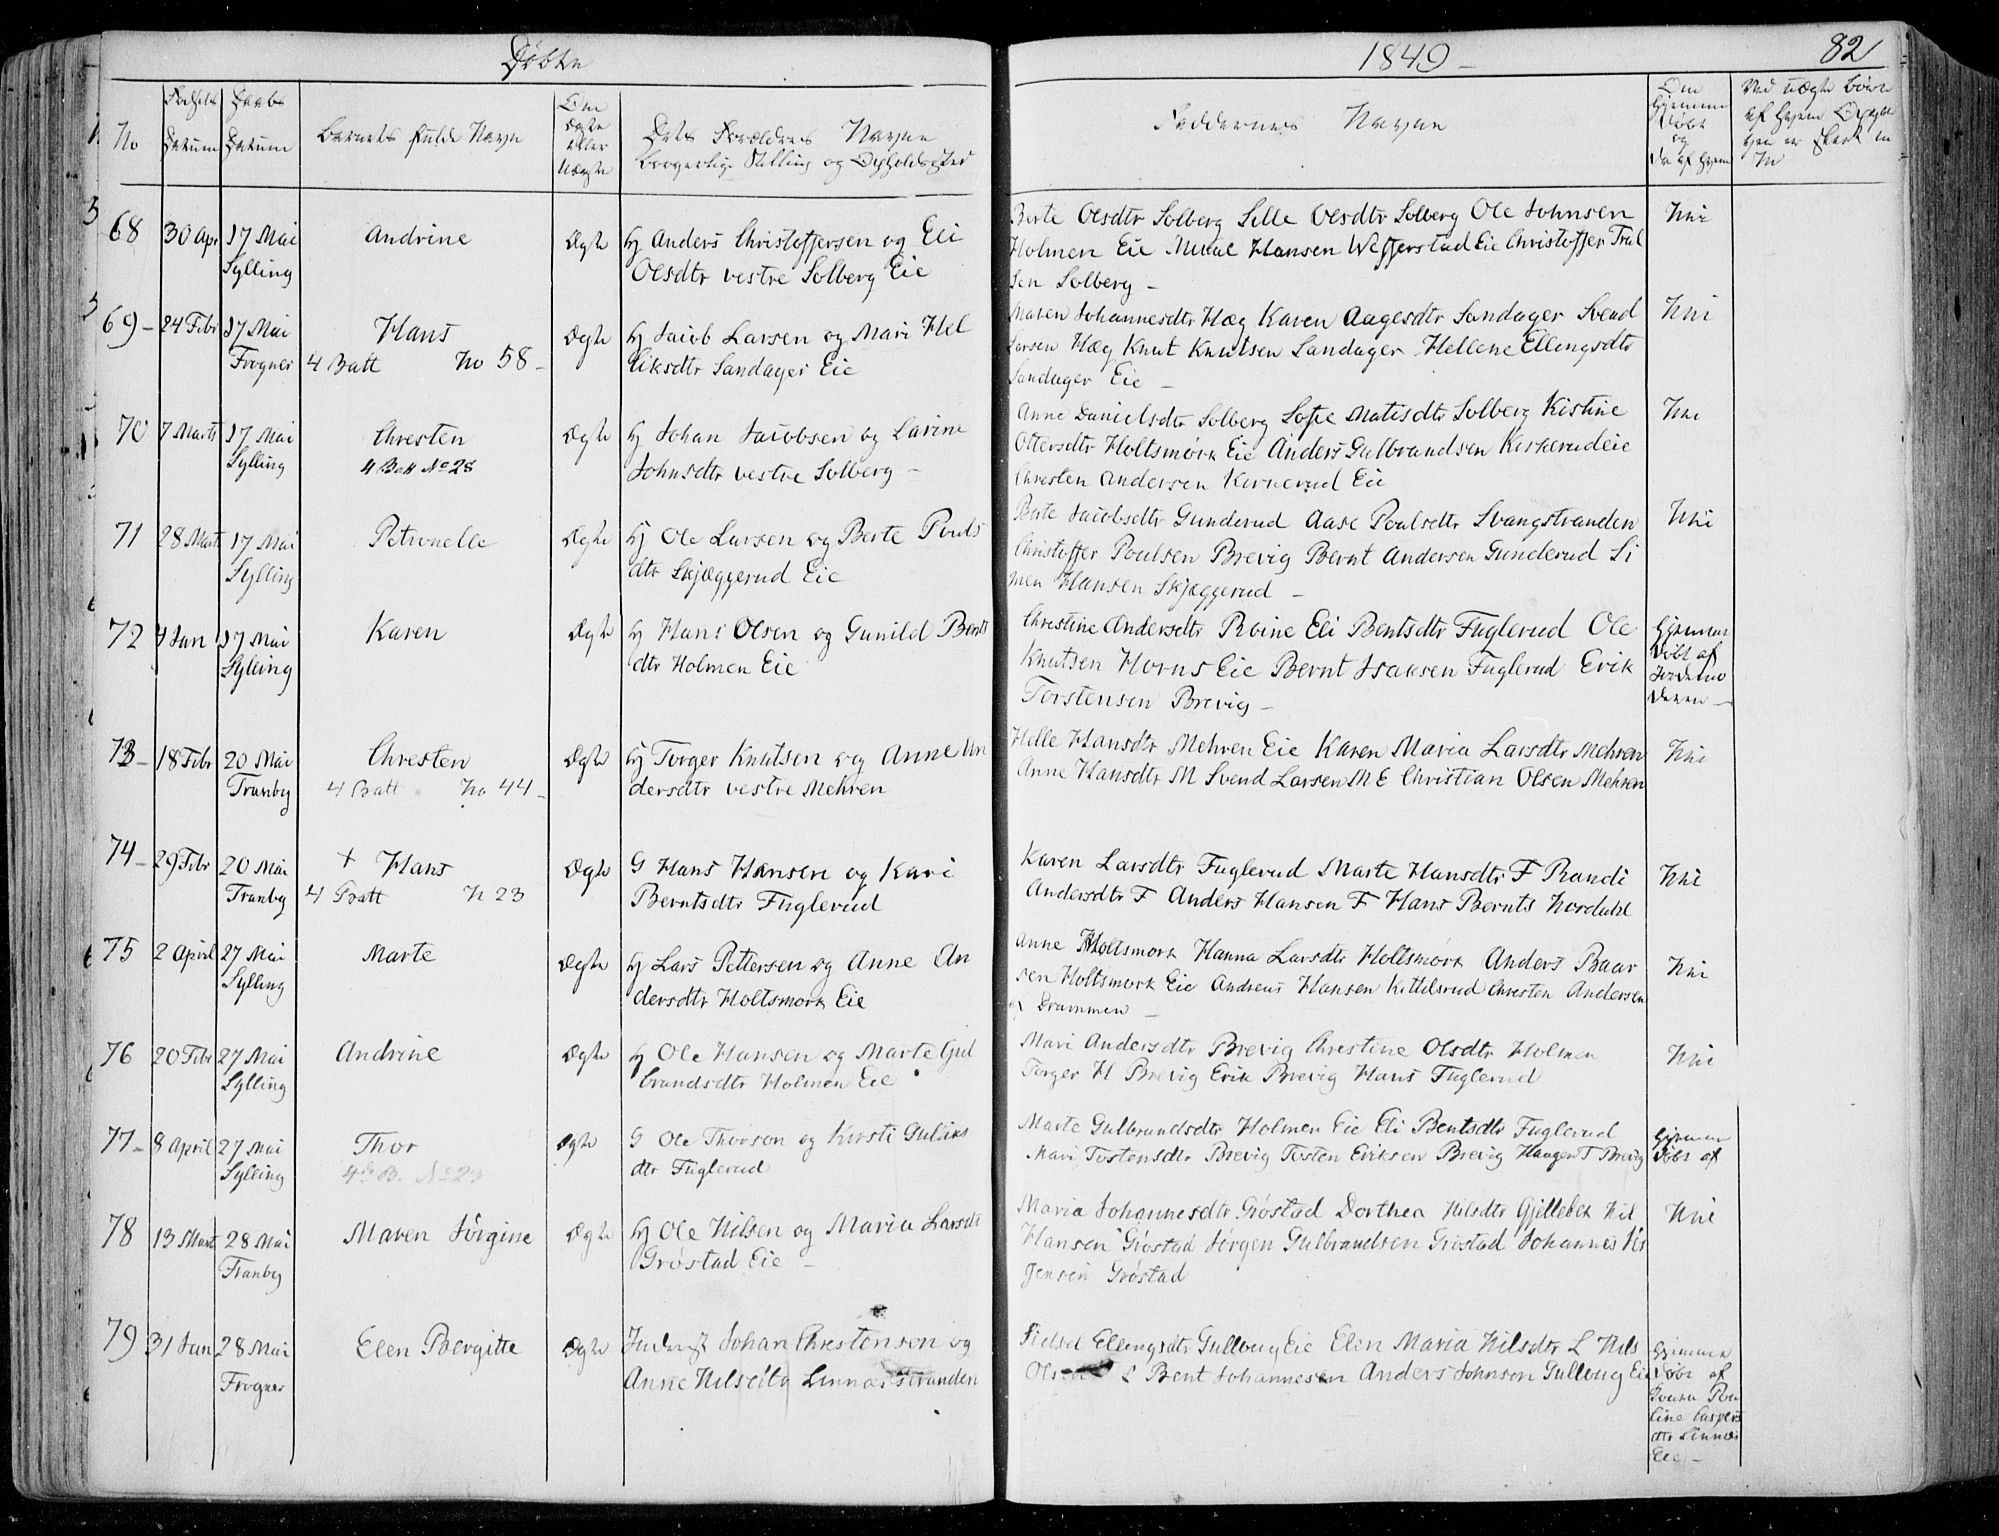 Døbte
1849 -
82
No
Fødsels Datum
Daabs Datum
Barnets fulde Navn
Om Ægte eller Uægte
Dets Forældres Navne
borgerlige Stilling og Opholdssted
Faddernes Navne
Om hjemme døbt og da af hvem
Ved uægte børn
68 30 Apr 17 Mai Sylling Andrine Ægte
Hj Anders Christoffersen og Eli
Olsdtr vestre Solberg Eie
Berte Olsdtr Solberg Sille Olsdtr Solberg Ole Johnsen
Holmen Eie Mikal Hansen Wefferstad Eie Christoffer Tral
sen Solberg -
Nei
69- 24 Febr 17 Mai Frogner Hans Ægte
4 Batt No 58 -
Hj Jacob Larsen og Mari Hel
liksdtr Sandager Eie
Maren Johannesdtr Hæg Karen Aagesdtr Sandager Svend
Larsen Hæg Knut Knutsen Sandager Hellene Ellingsdtr
Sandager Eie -
Nei
70 7 Marts 17 Mai Sylling Christen Ægte
4 Batt No 28
Hj Johan Jacobsen og Larine
Johnsdtr vestre Solberg -
Anne Danielsdtr Solberg Sofie Matisdtr Solberg Kistine
Ottersdtr Holtsmork Eie Anders Gulbrandsen Kirkerud eie
Chresten Andersen Kirkerud Eie
Nei
71 28 Mart 17 Mai Sylling Petronelle Ægte
Hj Ole Larsen og Berte Pouls
dtr Skjæggerud Eie
Berte Jacobsdtr Gunderud Aase Poulsdtr Svangstranden
Christoffer Poulsen Brevig Bernt Andersen Gunderud Si
men Hansen Skjæggerud -
Nei
72 4 Jan 17 Mai Sylling Karen Ægte
Hj Hans Olsen og Gunild Bents
dtr Holmen Eie
Christine Andersdtr Roine Eli Bentsdtr Fuglerud Ole
Knutsen Horns Eie Bernt Isaksen Fuglerud Erik
Torstensen Brevig -
Hjemme døbt af Jordemo deren -
73- 18 Febr 20 Mai Tranby Chresten Ægte
4 Batt No 44 -
Hj Torger Knutsen og Anne An
dersdtr vestre Mehren
Helle Hansdtr Mehren Eie Karen Maria Larsdtr Mehren
Anne Hansdtr M Svend Larsen M E Christian Olsen Mehren
Nei
74- 29 Febr 20 Mai Tranby + Hans Ægte
4 Batt N 23
G Hans Hansen og Kari
Berntsdtr Fuglerud
Karen Larsdtr Fuglerud Marte Hansdtr F Randi
Andersdtr F Anders Hansen F Hans Bernts Nordahl
Nei
75 2 April 27 Mai Sylling Marte Ægte
Hj Lars Pettersen og Anne An
dersdtr Holtsmork Eie
Anne Holtsmork Hanna Larsdtr Holtsmork Anders Baar
sen Holtsmork Eie Andreas Hansen Kittilsrud Chresten Andersen
Drammen -
Nei
76 20 Febr 27 Mai Sylling Andrine Ægte
Hj Ole Hansen og Marte Gul
brandsdtr Holmen Eie
Mari Andersdtr Brevig Chrestine Olsdtr Holmen
Torger H Brevig Erik Brevig Hans Fuglerud
Nei
77- 8 April 27 Mai Sylling Thor Ægte
4de B. No 23
G Ole Thorson og Kirsti Gulaks
dtr Fuglerud
Marte Gulbrandsdtr Holmen Eie Eli Bentsdtr Fuglerud
Mari Tostensdtr Brevig Tosten Eriksen Brevig Haagen T Brevig
Hjemme døbt af
78 13 Mart 28 Mai Tranby Maren Jørgine Ægte
Hj Ole Nilsen og Maria Larsdtr
Grøstad Eie -
Maria Johannesdtr Grøstad Dorthea Nilsdtr Gjellebek Nil
Hansen Grøstad Jørgen Gulbrandsen Grøstad Johannes Jør
gensen Grøstad
Nei
79 31 Jan 28 Mai Frogner Elen Bergitte Ægte
Inderst Johan Chrestensen og
Anne Nilsdtr Linnæsstranden
Sidsel Ellingsdtr Gulloug Eie Elen Maria Nilsdtr L Nils
Olsen L Bent Johannesen Anders Johnson Gulloug Eie
Hjemme døbt af Jonsn Pou line Caspers dtr Linnes Eie -